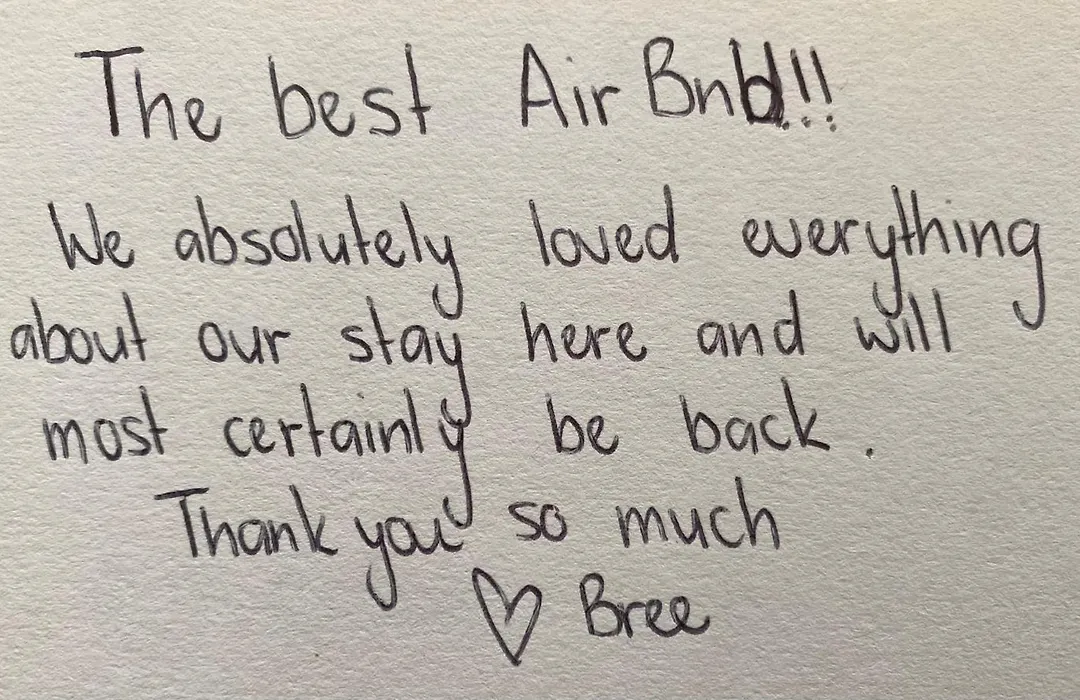 The best Air Bnb!!!
We absolutely loved everything
about our stay here and will
most certainly be back.
Thank you so much
♡ Bree